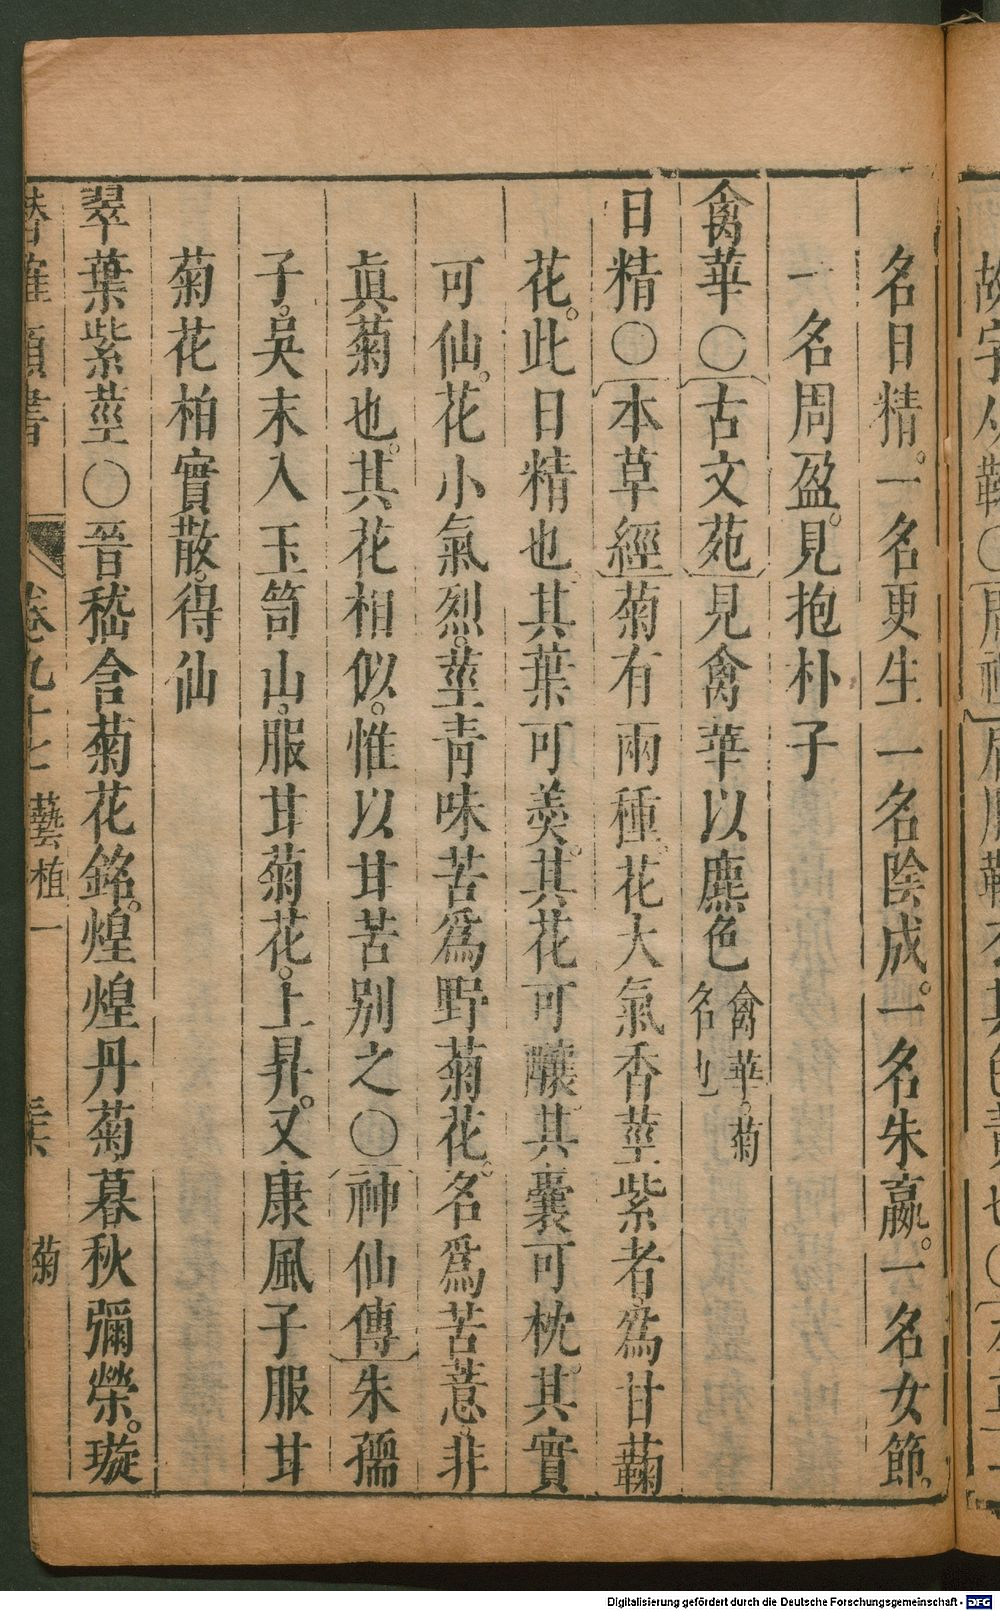 名日精。一名更生一名陰成。一名朱嬴。一名女節。
一名周盈。見抱朴子
禽華○古文苑見禽華以麃色禽華。菊名也
日精○本草經菊有兩種。花大氣香莖紫者。爲甘蘜
花。此日精也。其葉可羮。其花可釀。其囊可枕。其實
可仙。花小氣烈。莖青味苦爲野菊花。名爲苦薏。非
眞菊也。其花相似。惟以甘苦别之○神仙傳朱孺
子。吳末入玉笥山。服甘菊花。上昇。又康風子服甘
菊花柏實散。得仙
翠葉紫莖○晉嵇含菊花銘。煌煌丹菊。暮秋彌榮。璇
卷九十七 藝植一 菊
Digitalisierung gefördert durch die Deutsche Forschungsgemeinschaft - DFG